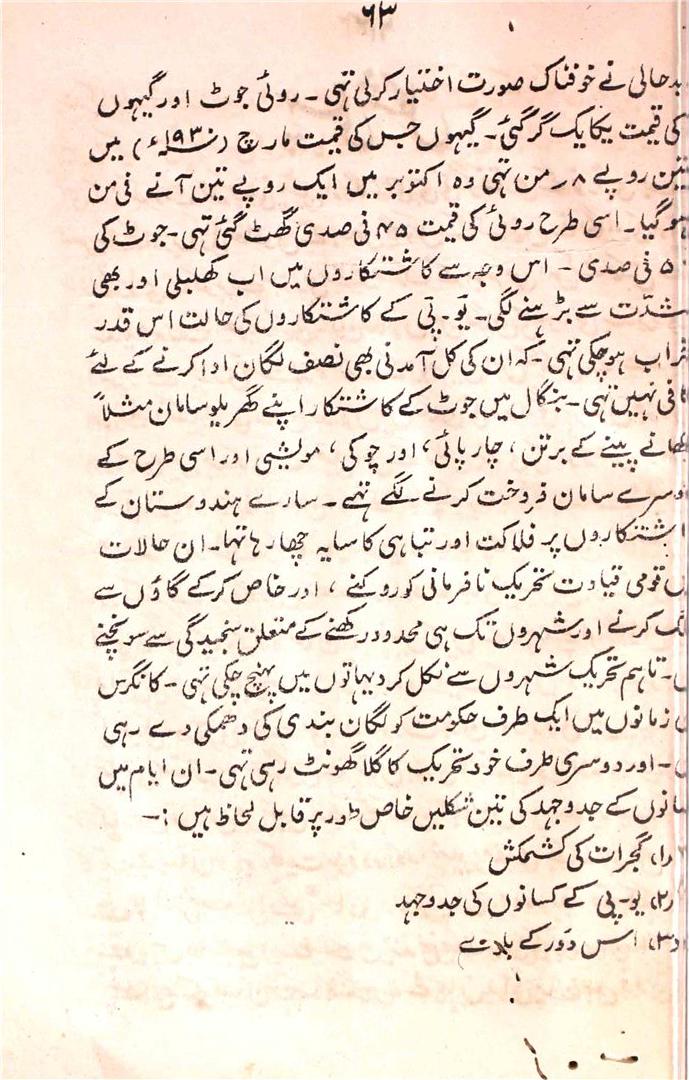 ۶۳
بدحالی نے خوفناک صورت اختیار کرلی تہی۔ روئی جوٹ اور گیہوں
کی قیمت یکایک گر گئی۔ گیہوں جس کی قیمت مارچ (۱۹۳۰ء) میں
تین روپے ۸ر من تہی وہ اکتوبر میں ایک روپے تین آنے فی من
ہوگیا۔ اسی طرح روئی کی قیمت ۴۵ فی صدی گھٹ گئی تہی۔ جوٹ کی
۵۰ فی صدی۔ اس وجہ سے کاشتکاروں میں اب کھلبلی اور بھی
شدّت سے بڑہنے لگی۔ یو۔پی کے کاشتکاروں کی حالت اس قدر
خراب ہوچکی تہی۔ کہ ان کی کل آمدنی بھی نصف لگان ادا کرنے کے لئے
کافی نہیں تہی۔ بنگال میں جوٹ کے کاشتکار اپنے گھریلو سامان مثلاً
کھانے پینے کے برتن، چارپائی، اور چوکی، مویشی اور اسی طرح کے
دوسرے سامان فروخت کرنے لگے تہے۔ سارے ہندوستان کے
کاشتکاروں پر فلاکت اور تباہی کا سایہ چھا رہا تہا۔ ان حالات
میں قومی قیادت تحریک نافرمانی کو روکنے، اور خاص کرکے گاؤں سے
الگ کرنے اور شہروں تک ہی محدود رکھنے کے متعلق سنجیدگی سے سونچنے
۔ تاہم تحریک شہروں سے نکل کر دیہاتوں میں پہنچ چکی تہی۔ کانگرس
زمانوں میں ایک طرف حکومت کو لگان بندی کی دھمکی دے رہی
۔ اور دوسری طرف خود تحریک کا گلا گھونٹ رہی تہی۔ ان ایام میں
کسانوں کے جدوجہد کی تین شکلیں خاص طور پر قابل لحاظ ہیں :۔
(۱) گجرات کی کشمکش
(۲) یو۔پی کے کسانوں کی جدوجہد
(۳) اس دَور کے بلوے